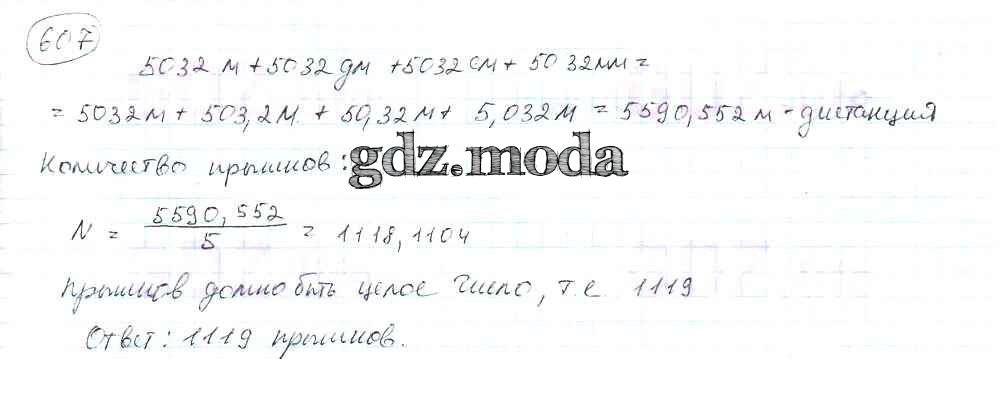 607
5032 м + 5032 дм + 5032 см + 5032 мм =
= 5032 м + 503,2 м + 50,32 м + 5,032 м = 5590,552 м - дистанция
Количество прыжков:
gdz.moda
N = 5590,552 / 5 = 1118,1104
Прыжков должно быть целое число, т.е. 1119
Ответ: 1119 прыжков.